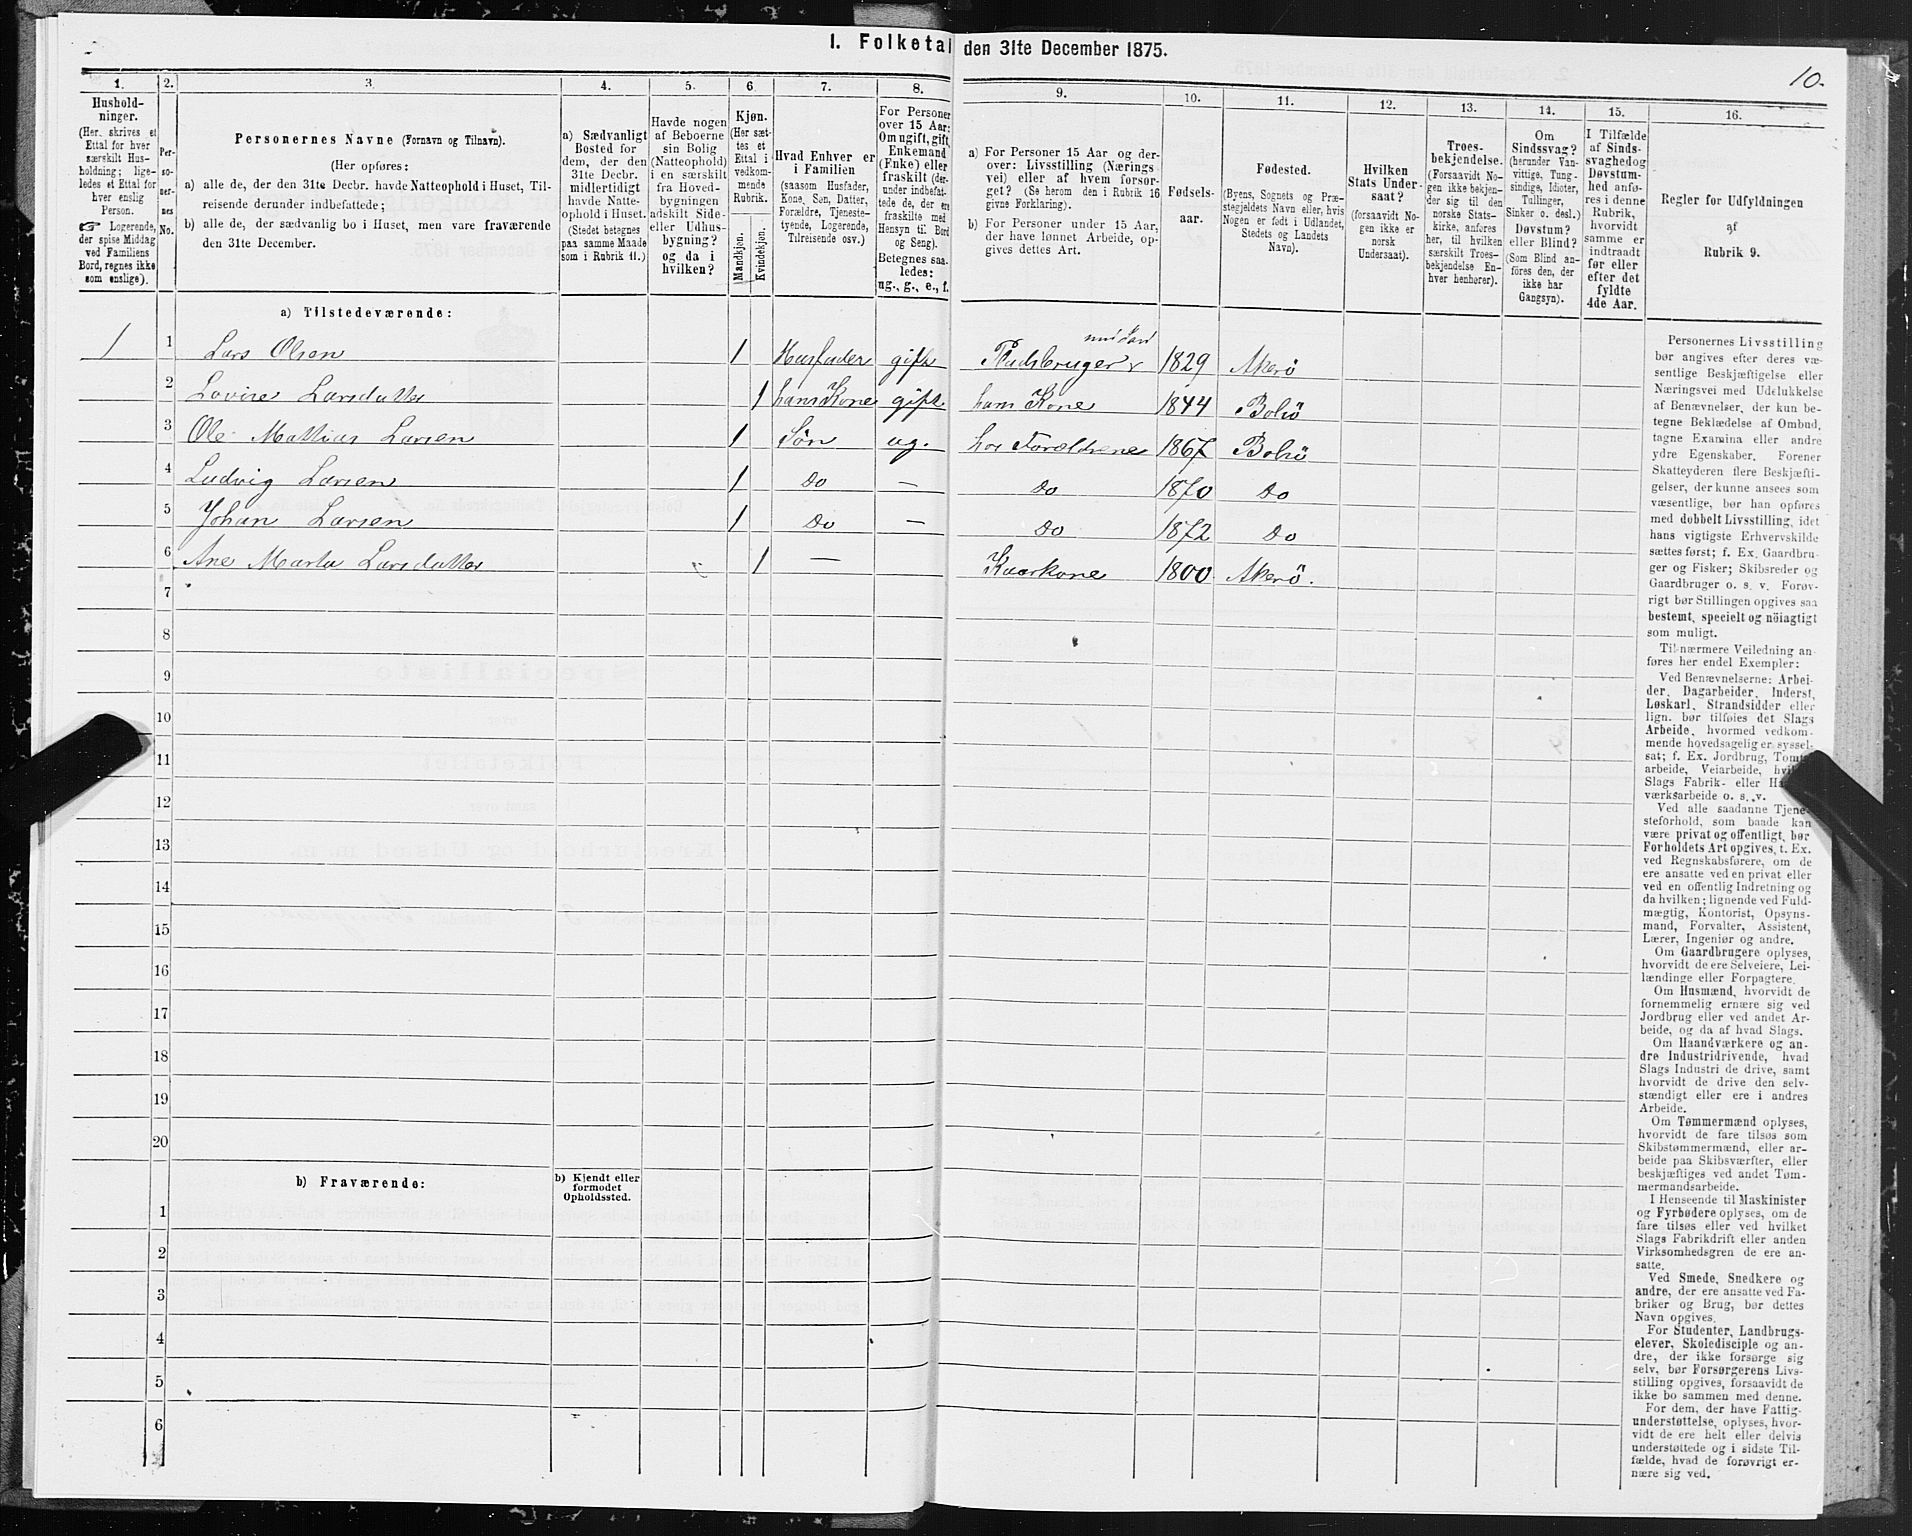 1. Folketal den 31te December 1875.
10.
1.
Hushold-
ninger.
(Her skrives et
Ettal for hver
særskilt Hus-
holdning; lige-
ledes et Ettal for
hver enslig
Person.
☞ Logerende,
der spise Middag
ved Familiens
Bord, regnes ikke
som enslige).
2.
Per-
so-
ner-
nes
No.
3.
Personernes Navne (Fornavn og Tilnavn).
(Her opføres:
a) alle de, der den 31te Decbr. havde Natteophold i Huset, Til-
reisende derunder indbefattede;
b) alle de, der sædvanlig bo i Huset, men vare fraværende
den 31te December.
4.
a) Sædvanligt
Bosted for
dem, der den
31te Decbr.
midlertidigt
havde Natte-
ophold i Huset.
(Stedet betegnes
paa samme Maade
som i Rubrik 11.)
5.
Havde nogen
af Beboerne
sin Bolig
(Natteophold)
i en særskilt
fra Hoved-
bygningen
adskilt Side-
eller Udhus-
bygning?
og da i
hvilken?
6.
Kjøn.
(Her sæt-
tes et
Ettal i
vedkom-
mende
Rubrik.
Mandkjøn.
Kvindekjøn.
7.
Hvad Enhver er
i Familien
(saasom Husfader,
Kone, Søn, Datter,
Forældre, Tjeneste-
tyende, Logerende,
Tilreisende osv.)
8.
For Personer
over 15 Aar:
Om ugift, gift,
Enkemand
(Enke) eller
fraskilt (der-
under indbefat-
tede de, der ere
fraskilte med
Hensyn til Bord
og Seng).
Betegnes saa-
ledes:
ug., g., e., f.
9.
a) For Personer 15 Aar og der-
over: Livsstilling (Nærings-
vei) eller af hvem forsør-
get? (Se herom den i Rubrik 16
givne Forklaring).
b) For Personer under 15 Aar,
der have lønnet Arbeide, op-
gives dettes Art.
10.
Fødsels-
aar.
11.
Fødested.
(Byens, Sognets og Præ-
stegjeldets Navn eller, hvis
Nogen er født i Udlandet,
Stedets og Landets
Navn).
12.
Hvilken
Stats Under-
saat?
(forsaavidt No-
gen ikke er
norsk
Undersaat).
13.
Troes-
bekjendelse.
(Forsaavidt No-
gen ikke bekjen-
der sig til den
norske Stats-
kirke, anføres
her, til hvilken
særskilt Troes-
bekjendelse En-
hver henhører).
14.
Om
Sindssvag?
(herunder Van-
vittige, Tung-
sindige, Idioter,
Tullinger,
Sinker o. desl.)
Døvstum?
eller Blind?
(Som Blind an-
føres den, der
ikke har
Gangsyn).
15.
I Tilfælde
af Sinds-
svaghed og
Døvstum-
hed anfø-
res i denne
Rubrik,
hvorvidt
samme er
indtraadt
før eller
efter det
fyldte
4de Aar.
16.
Regler for Udfyldningen
af
Rubrik 9.
a) Tilstedeværende:
1 1 Lars Olsen 1 Husfader gift 1829 Akerö
2 Lovise Larsdatter 1 hans Kone gift hans Kone 1844 Bolsö
3 Ole Mattias Larsen 1 Søn ug. hos Forældrene 1867 Bolsö
4 Ludvig Larsen 1 Do — Do 1870 Do
5 Johan Larsen 1 Do — Do 1872 Do
6 Ane Marta Larsdatter 1 — Kaarkone 1800 Akerö.
7
8
9
10
11
12
13
14
15
16
17
18
19
20
b) Fraværende:
b) Kjendt eller
formodet
Opholdssted.
1
2
3
4
5
6
Personernes Livsstilling
bør angives efter deres væ-
sentlige Beskjæftigelse eller
Næringsvei med Udelukkelse
af Benævnelser, der kun be-
tegne Beklædelse af Ombud,
tagne Examina eller andre
ydre Egenskaber. Forener
Skatteyderen flere Beskjæfti-
gelser, der kunne ansees som
væsentlige, bør han opføres
med dobbelt Livsstilling, idet
hans vigtigste Erhvervskilde
sættes først; f. Ex. Gaardbru-
ger og Fisker; Skibsreder og
Gaardbruger o. s. v. Forøv-
rigt bør Stillingen opgives saa
bestemt, specielt og nöiagtigt
som muligt.
Til nærmere Veiledning an-
føres her endel Exempler:
Ved Benævnelserne: Arbei-
der, Dagarbeider, Inderst,
Løskarl, Strandsidder eller
lign. bør tilføies det Slags
Arbeide, hvormed vedkom-
mende hovedsagelig er syssel-
sat; f. Ex. Jordbrug, Tomt-
arbeide, Veiarbeide,
Slags Fabrik- eller
værksarbeide o. s. v.
Ved alle saadanne Tjene-
steforhold, som baade kan
være privat og offentligt, bør
Forholdets Art opgives, f. Ex.
ved Regnskabsførere, om de
ere ansatte ved en privat eller
ved en offentlig Indretning og
da hvilken; lignende ved Fuld-
mægtig, Kontorist, Opsyns-
mand, Forvalter, Assistent,
Lærer, Ingeniør og andre.
Om Gaardbrugere oplyses,
hvorvidt de ere Selveiere, Lei-
lændinge eller Forpagtere.
Om Husmænd, hvorvidt de
fornemmelig ernære sig ved
Jordbrug eller ved andet Ar-
beide, og da af hvad Slags.
Om Haandværkere og an-
dre Industridrivende, hvad
Slags Industri de drive, samt
hvorvidt de drive den selv-
stændigt eller ere i andres
Arbeide.
Om Tømmermænd oplyses,
hvorvidt de fare tilsøs som
Skibstømmermænd, eller ar-
beide paa Skibsværfter, eller
beskjæftiges ved andet Tøm-
mermandsarbeide.
I Henseende til Maskinister
og Fyrbødere oplyses, om de
fare tilsøs eller ved hvilket
Slags Fabrikdrift eller anden
Virksomhedsgren de ere an-
satte.
Ved Smede, Snedkere og
andre, der ere ansatte ved Fa-
briker og Brug, bør dettes
Navn opgives.
For Studenter, Landbrugs-
elever, Skoledisciple og an-
dre, der ikke forsørge sig
selv, bør Forsørgerens Livs-
stilling opgives, forsaavidt de
ikke bo sammen med denne.
For dem, der have Fattig-
understøttelse, oplyses, hvor-
vidt de ere helt eller delvis
understøttede og i sidste Til-
fælde, hvad de forøvrigt er-
nære sig ved.